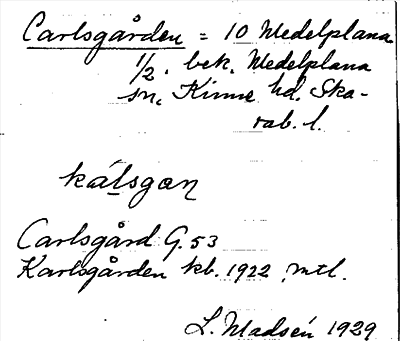 Carlsgården = 10 Medelplana
1/2. bek. Medelplana
sn, Kinne hd. Ska-
rab. l.
kálsgan
Carlsgård G. 53
Karlsgården kb. 1922 mtl.
L. Madsén 1929